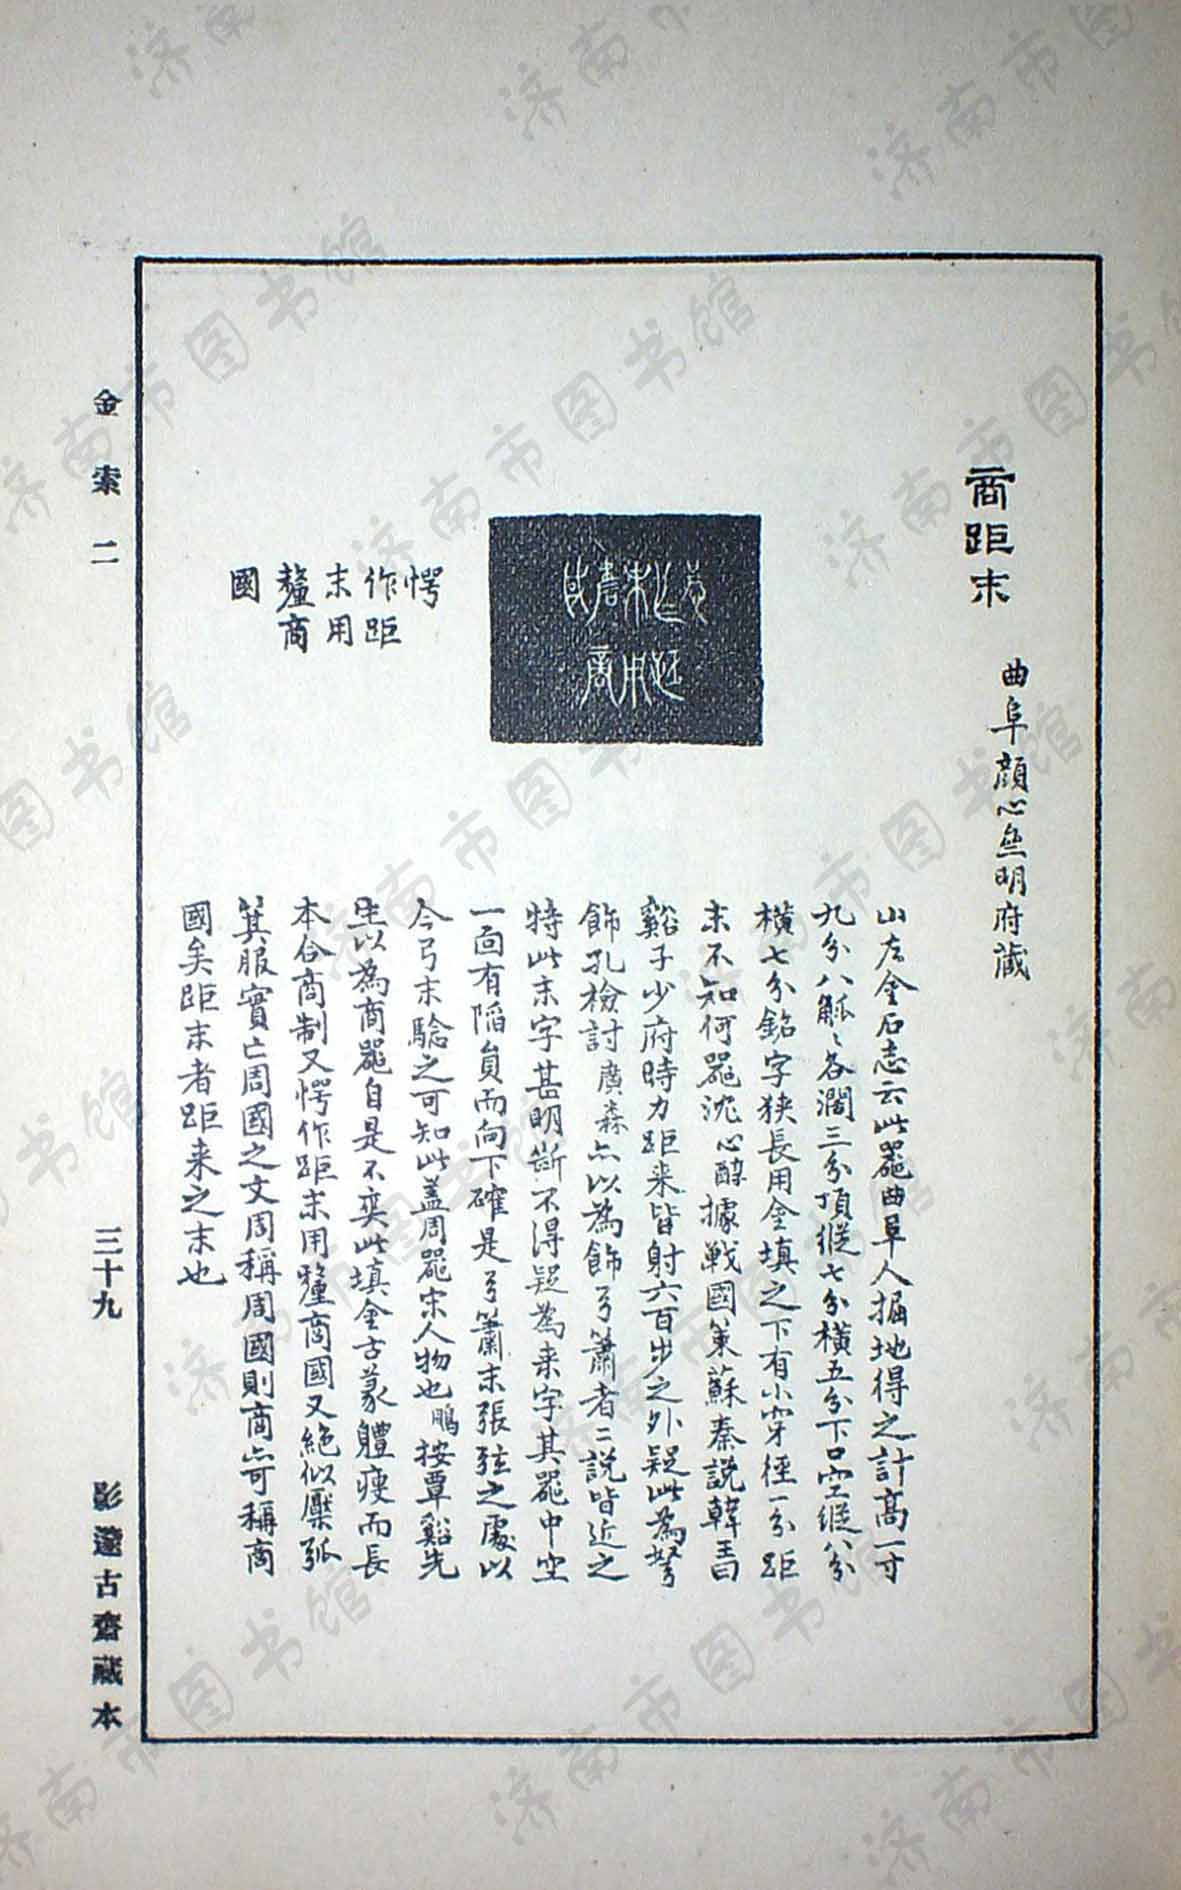 商距末
曲阜顏心無明府藏
愕
作距
末用
釐商
國
山左金石志云此器曲阜人掘地得之計高一寸
九分八觚〻各濶三分頂縱七分橫五分下口空縱八分
橫七分銘字狹長用金填之下有小穿徑一分距
末不知何器沈心醇據戰國策蘇秦說韓王曰
谿子少府時力距来皆射六百步之外疑此為弩
飾孔檢討廣森亦以為飾弓簫者二說皆近之
特此末字甚明斷不得疑為来字其器中空
一面有陷員而向下確是弓簫末張弦之處以
今弓末驗之可知此蓋周器宋人物也鵬按覃谿先
生以為商器自是不爽此填金古篆體瘦而長
本合商制又愕作距末用釐商國又絕似檿弧
箕服實亡周國之文周稱周國則商亦可稱商
國矣距末者距来之末也
金索二
三十九
影邃古齋藏本
济南市图书馆